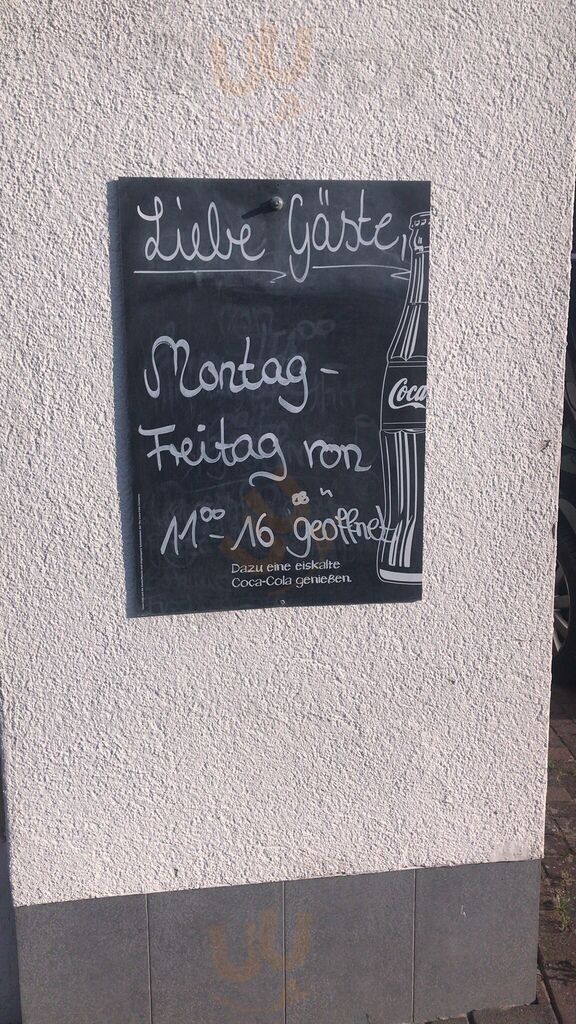 Liebe Gäste,
Montag-
Freitag von
11⁰⁰-16⁰⁰ geöffnet
Dazu eine eiskalte
Coca-Cola genießen.
Coca